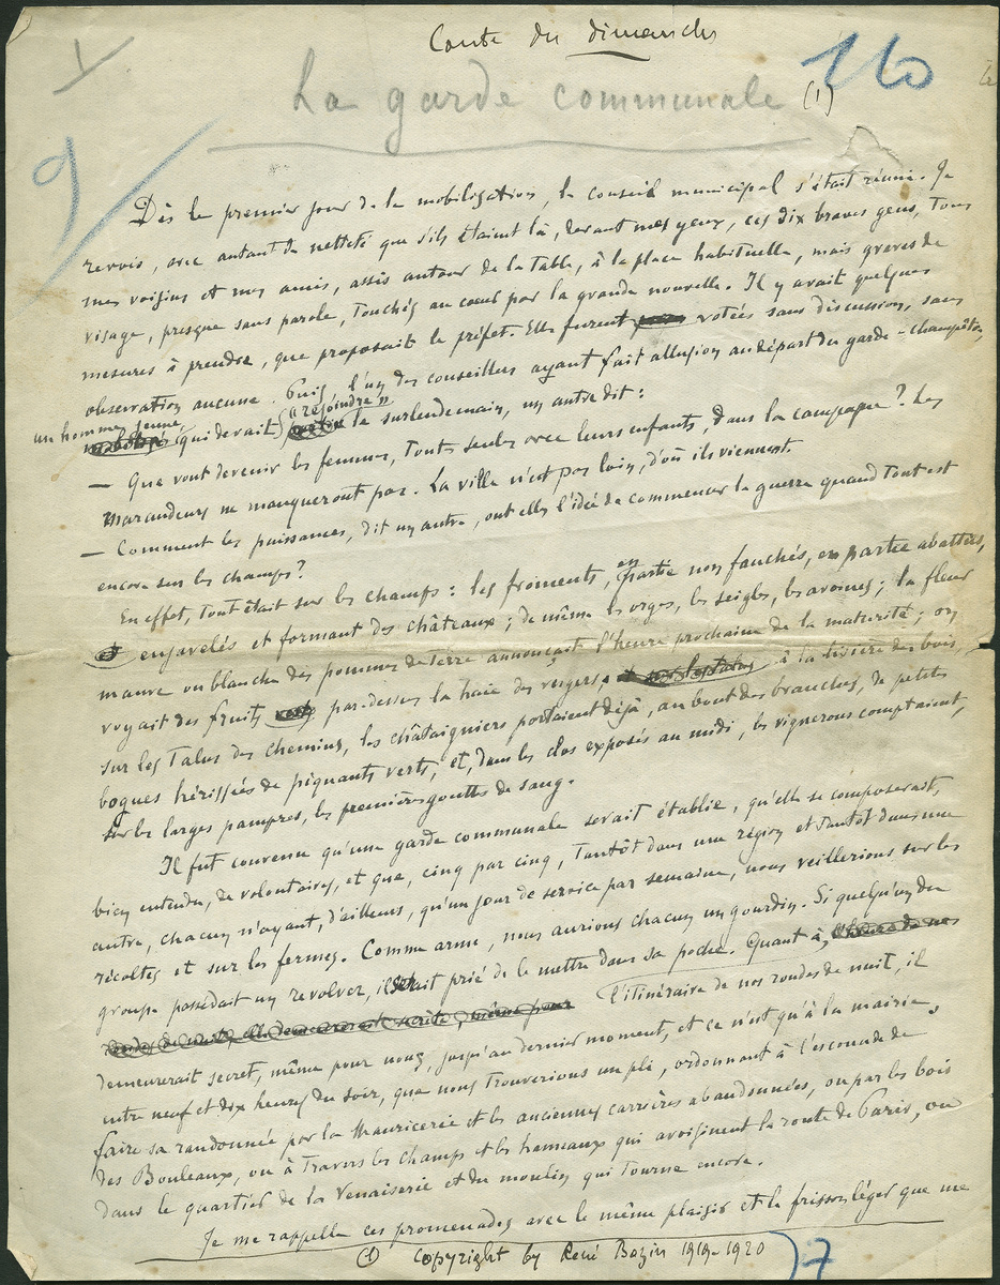 Conte du dimanche
160
La garde communale (1)
9/
Dès le premier jour de la mobilisation, le conseil municipal s'était réuni. Je
revois, avec autant de netteté que s'ils étaient là, devant mes yeux, ces dix braves gens, tous
mes voisins et mes amis, assis autour de la table, à la place habituelle, mais graves de
visage, presque sans parole, touchés au cœur par la grande nouvelle. Il y avait quelques
mesures à prendre, que proposait le préfet. Elles furent votées sans discussion, sans
observation aucune. Puis, l'un des conseillers ayant fait allusion au départ du garde-champêtre,
un homme jeune, qui devait "rejoindre" le surlendemain, un autre dit :
— Que vont devenir les femmes, toutes seules avec leurs enfants, dans la campagne ? Les
maraudeurs ne manqueront pas. La ville n'est pas loin, d'où ils viennent.
— Comment les puissances, dit un autre, ont elles l'idée de commencer la guerre quand tout est
encore sur les champs ?
En effet, tout était sur les champs : les froments, en partie non fauchés, en partie abattus,
et enjavelés et formant des châteaux ; de même les orges, les seigles, les avoines ; la fleur
mauve ou blanche des pommes de terre annonçait l'heure prochaine de la maturité ; on
voyait des fruits par-dessus la haie des vergers, à la lisière des bois,
sur les talus des chemins, les châtaigniers portaient déjà, au bout des branches, de petites
bogues hérissées de piquants verts, et, dans les clos exposés au midi, les vignerons comptaient,
sur les larges pampres, les premières gouttes de sang.
Il fut convenu qu'une garde communale serait établie, qu'elle se composerait,
bien entendu, de volontaires, et que, cinq par cinq, tantôt dans une région et tantôt dans une
autre, chacun n'ayant, d'ailleurs, qu'un jour de service par semaine, nous veillerions sur les
récoltes et sur les fermes. Comme arme, nous aurions chacun un gourdin. Si quelqu'un du
groupe possédait un revolver, il était prié de le mettre dans sa poche. Quant à
l'itinéraire de nos rondes de nuit, il
demeurerait secret, même pour nous, jusqu'au dernier moment, et ce n'est qu'à la mairie,
entre neuf et dix heures du soir, que nous trouverions un pli, ordonnant à l'escouade de
faire sa randonnée par la Mauricerie et les anciennes carrières abandonnées, ou par les bois
des Bouleaux, ou à travers les champs et les hameaux qui avoisinent la route de Paris, ou
dans le quartier de la Venaiserie et du moulin qui tourne encore.
Je me rappelle ces promenades avec le même plaisir et le frisson léger que me
(1) Copyright by René Bazin 1919-1920
7